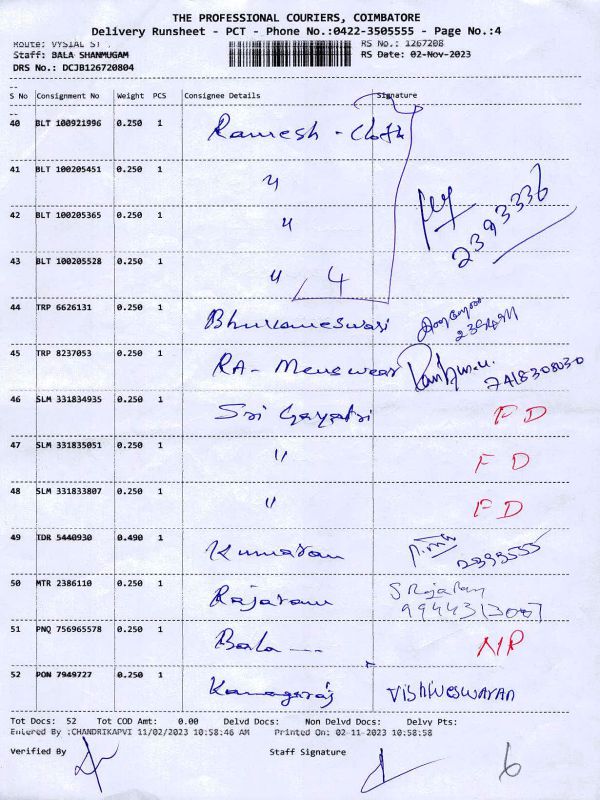 THE PROFESSIONAL COURIERS, COIMBATORE
Delivery Runsheet - PCT - Phone No.:0422-3505555 - Page No.:4
Route: VYSIAL ST , RS No.: 1267208
Staff: BALA SHANMUGAM RS Date: 02-Nov-2023
DRS No.: DCJB126720804
S No Consignment No Weight PCS Consignee Details Signature
40 BLT 100921996 0.250 1 Ramesh - Cloth
41 BLT 100205451 0.250 1 "
42 BLT 100205365 0.250 1 " 2393336
43 BLT 100205528 0.250 1 " 4
44 TRP 6626131 0.250 1 Bhuvaneswari
45 TRP 8237053 0.250 1 RA - Menswear 7418308030
46 SLM 331834935 0.250 1 Sri Gayatri FD
47 SLM 331835051 0.250 1 " FD
48 SLM 331833807 0.250 1 " FD
49 IDR 5440930 0.490 1 Kumaran 2393555
50 MTR 2386110 0.250 1 Rajaram S Rajaram
51 PNQ 756965578 0.250 1 Bala --- NP
52 PON 7949727 0.250 1 Kanagaraj Vishweswaran
Tot Docs: 52 Tot COD Amt: 0.00 Delvd Docs: Non Delvd Docs: Delvy Pts:
Entered By :CHANDRIKAPVI 11/02/2023 10:58:46 AM Printed On: 02-11-2023 10:58:58
Verified By Staff Signature 6